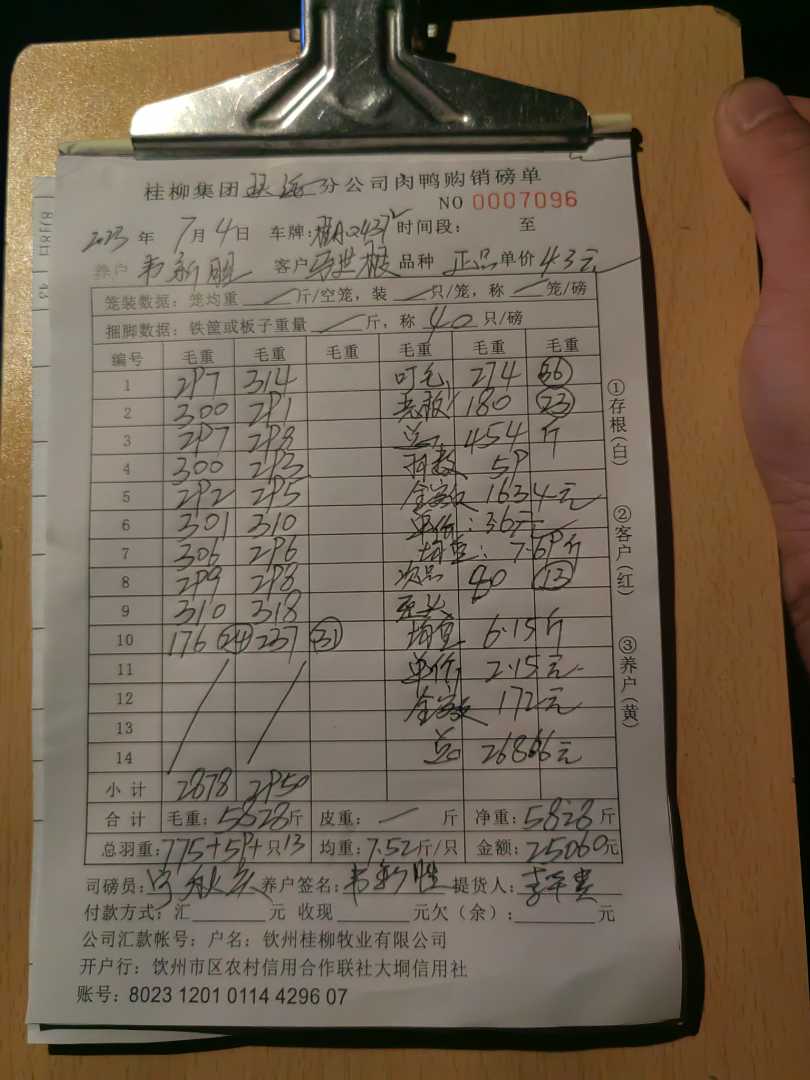 桂柳集团 分公司肉鸭购销磅单
NO 0007096
2023年 7月 4日 车牌: 时间段: 至
养户 韦新胜 客户 品种 正品 单价 4.3元
笼装数据: 笼均重 / 斤/空笼, 装 / 只/笼, 称 / 笼/磅
捆脚数据: 铁筐或板子重量 / 斤, 称 40 只/磅
编号 毛重 毛重 毛重 毛重 毛重 毛重
1 297 314 叮毛 274 36
2 300 291 180 23
3 297 298 总 454 斤
4 300 293 只数 59
5 292 295 金额 1634元
6 301 310 单价: 3.6元
7 306 296 均重: 7.69斤
8 299 298 次品 80 13
9 310 318
10 176 24 237 31 均重 6.15斤
11 单价 2.15元
12 金额 172元
13
14 总 26866元
小计 2878 2950
合计 毛重: 5828斤 皮重: / 斤 净重: 5828斤
总羽重: 775+59+只13 均重: 7.52斤/只 金额: 25060元
司磅员: 养户签名: 韦新胜 提货人:
付款方式: 汇 元 收现 元欠(余): 元
公司汇款帐号: 户名: 钦州桂柳牧业有限公司
开户行: 钦州市区农村信用合作联社大垌信用社
账号: 8023 1201 0114 4296 07
①存根(白)
②客户(红)
③养户(黄)